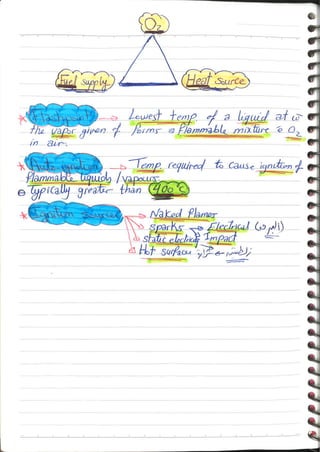 O2
Fuel supply
Heat source
Flash point → Lowest temp. of a liquid at w
the vapor given of forms a Flammable mixture e O2
in air.
Auto ignition → Temp. required to cause ignition of
Flammable liquids / vapours
typically greater than 400°C
Ignition sources → Naked Flames
sparks → Electrical
static electricity Impact
Hot surfaces